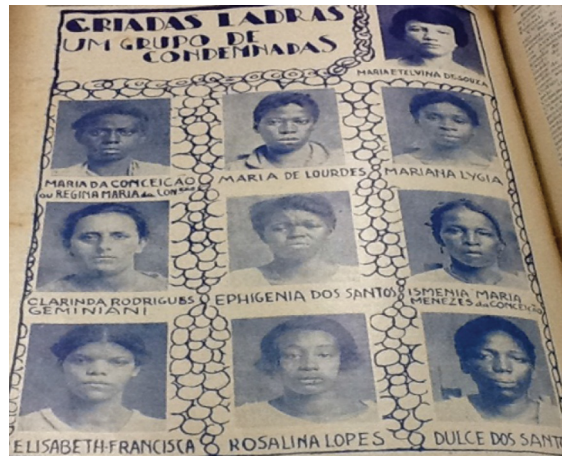 CRIADAS LADRAS
UM GRUPO DE
CONDEMNADAS
MARIA ETELVINA DE SOUZA
MARIA DA CONCEIÇÃO
OU REGINA MARIA da CONSÃO
MARIA DE LOURDES
MARIANA LYGIA
CLARINDA RODRIGUES
GEMINIANI
EPHIGENIA DOS SANTOS
ISMENIA MARIA
MENEZES da CONCEIÇÃO
ELISABETH-FRANCISCA
ROSALINA LOPES
DULCE DOS SANT